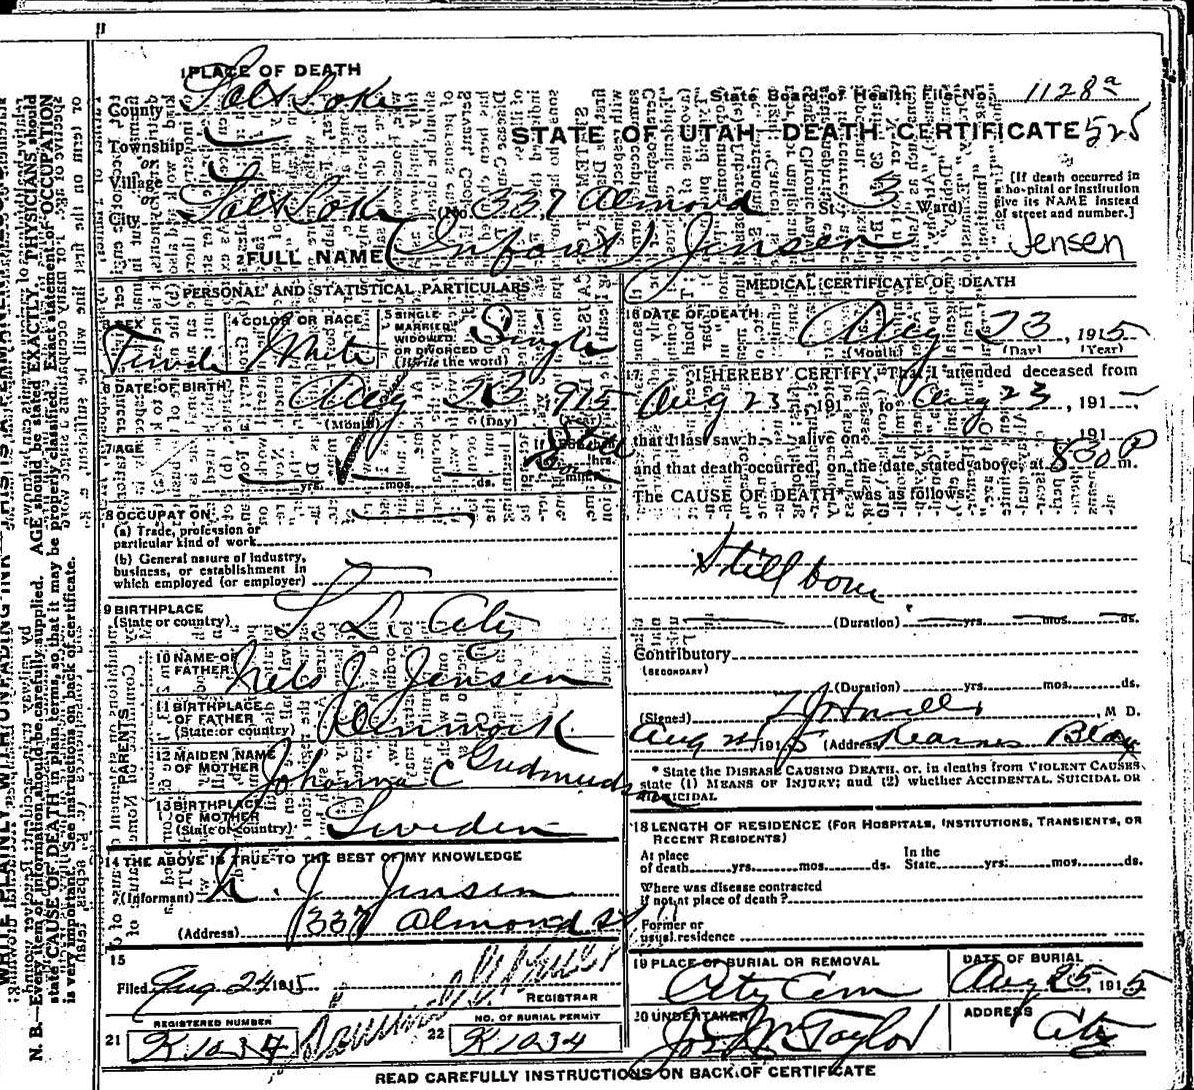 1 PLACE OF DEATH
County Salt Lake
State Board of Health File No. 1128a
STATE OF UTAH—DEATH CERTIFICATE 525
Township
or
Village
or
City Salt Lake (No. 337 Almond St. 3 Ward)
[If death occurred in a hospital or institution give its NAME instead of street and number.]
2 FULL NAME (Infant) Jensen
Jensen
PERSONAL AND STATISTICAL PARTICULARS
3 SEX Female
4 COLOR OR RACE White
5 SINGLE MARRIED WIDOWED OR DIVORCED (Write the word) Single
6 DATE OF BIRTH Aug 23 1915
(Month) (Day)
7 AGE yrs. mos. ds.
Still born
8 OCCUPATION
(a) Trade, profession or particular kind of work
(b) General nature of industry, business, or establishment in which employed (or employer)
9 BIRTHPLACE (State or country) S. L. City
PARENTS
10 NAME OF FATHER Nels J. Jensen
11 BIRTHPLACE OF FATHER (State or country) Denmark
12 MAIDEN NAME OF MOTHER Johanna C
13 BIRTHPLACE OF MOTHER (State or country) Sweden
14 THE ABOVE IS TRUE TO THE BEST OF MY KNOWLEDGE
(Informant) N. J. Jensen
(Address) 337 Almond St
15
Filed Aug 24 1915
REGISTRAR
21 REGISTERED NUMBER K1034
22 NO. OF BURIAL PERMIT K1034
MEDICAL CERTIFICATE OF DEATH
16 DATE OF DEATH Aug 23, 1915
(Month) (Day) (Year)
17 I HEREBY CERTIFY, That I attended deceased from
Aug 23 191 to Aug 23, 191
that I last saw h alive on 191
and that death occurred, on the date stated above, at 830 P m.
The CAUSE OF DEATH* was as follows:
Still born
(Duration) yrs. mos. ds.
Contributory
(SECONDARY)
(Duration) yrs. mos. ds.
(Signed) M. D.
Aug 24 1915 (Address) Kearns Bldg
* State the DISEASE CAUSING DEATH, or, in deaths from VIOLENT CAUSES, state (1) MEANS OF INJURY; and (2) whether ACCIDENTAL, SUICIDAL OR HOMICIDAL
18 LENGTH OF RESIDENCE (FOR HOSPITALS, INSTITUTIONS, TRANSIENTS, OR RECENT RESIDENTS)
At place of death yrs. mos. ds. In the State yrs. mos. ds.
Where was disease contracted if not at place of death?
Former or usual residence
19 PLACE OF BURIAL OR REMOVAL City Cem
DATE OF BURIAL Aug 25 1915
20 UNDERTAKER Jos Wm Taylor
ADDRESS City
READ CAREFULLY INSTRUCTIONS ON BACK OF CERTIFICATE
N. B.—Every item of information should be carefully supplied. AGE should be stated EXACTLY. PHYSICIANS should
state CAUSE OF DEATH in plain terms, so that it may be properly classified. Exact statement of OCCUPATION
is very important. See instructions on back of certificate.